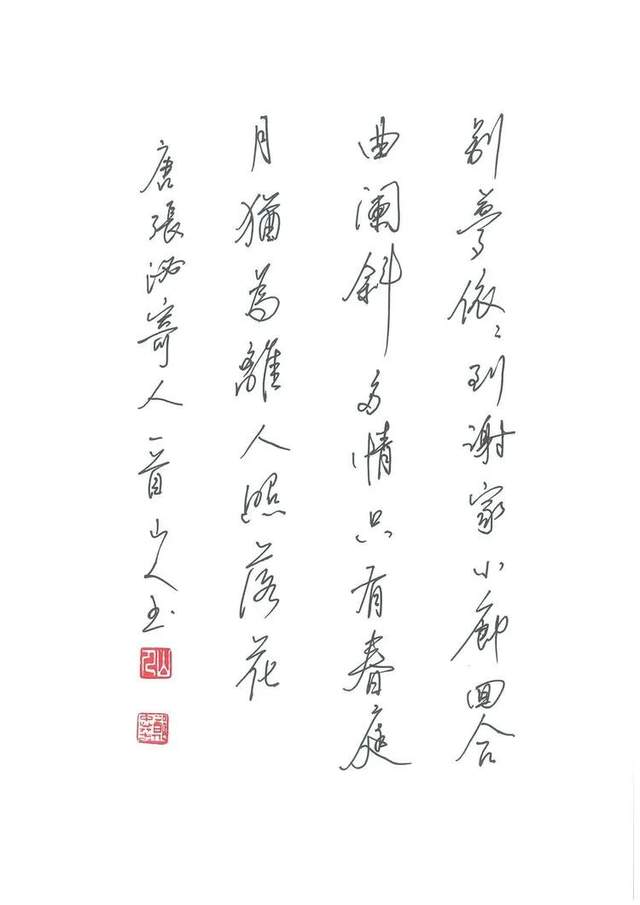 别夢依〻到谢家小廊回合
曲阑斜多情只有春庭
月猶為離人照落花
唐張泌寄人一首山人书
山人